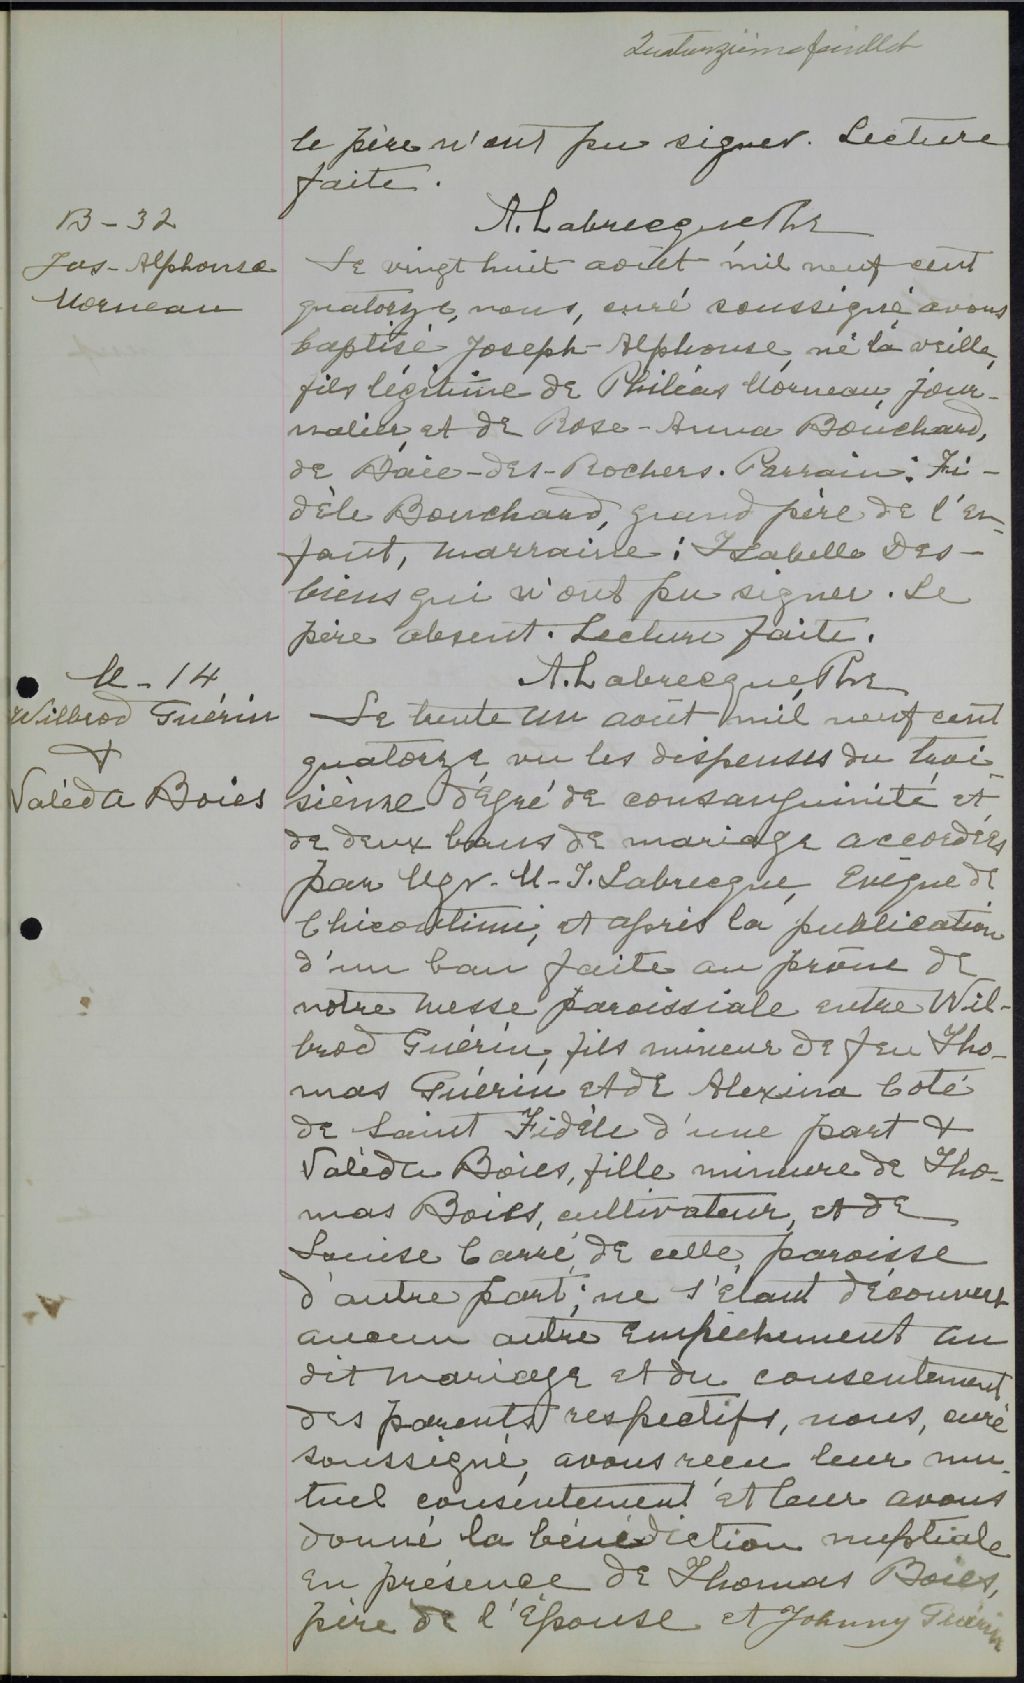 Quatorzième feuillet
le père n'ont pu signer. Lecture
faite.
A. Labrecque Ptre
B-32
Jos-Alphonse
Morneau
Le vingt huit août mil neuf cent
quatorze, nous, curé soussigné avons
baptisé Joseph-Alphonse, né la veille,
fils légitime de Philéas Morneau, jour-
nalier, et de Rose-Anna Bouchard,
de Baie-des-Rochers. Parrain: Fi-
dèle Bouchard, grand père de l'en-
fant, marraine: Isabelle Des-
biens qui n'ont pu signer. Le
père absent. Lecture faite.
A. Labrecque, Ptre
M-14
Wilbrod Guérin
&
Valéda Boies
Le trente un août mil neuf cent
quatorze vu les dispenses du troi-
sième dégré de consanguinité et
de deux bans de mariage accordées
par Mgr. M-T. Labrecque, Evêque de
Chicoutimi, et après la publication
d'un ban faite au prône de
notre messe paroissiale entre Wil-
brod Guérin, fils mineur de feu Tho-
mas Guérin et de Alexina Coté
de Saint Fidèle d'une part &
Valéda Boies, fille mineure de Tho-
mas Boies, cultivateur, et de
Louise Carré, de cette paroisse
d'autre part; ne s'étant découvert
aucun autre empêchement au
dit mariage et du consentement
des parents respectifs, nous, curé
soussigné, avons reçu leur mu-
tuel consentement et leur avons
donné la bénédiction nuptiale
en présence de Thomas Boies,
père de l'Épouse et Johnny Guérin